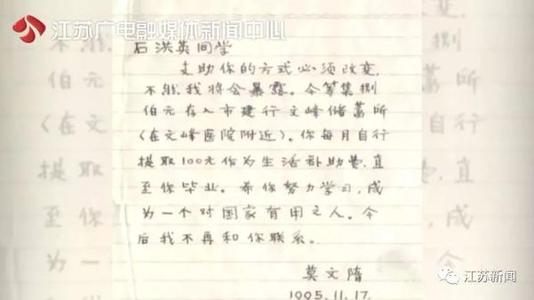 江苏广电融媒体新闻中心
石洪英同学
支助你的方式必须改变,
不然我将会暴露。今筹集捌
佰元存入市建行文峰储蓄所
(在文峰医院附近)。你每月自行
提取100元作为生活补助费,直
至你毕业。希你努力学习,成
为一个对国家有用之人。今
后我不再和你联系。
莫文隋
1995.11.17.
江苏新闻